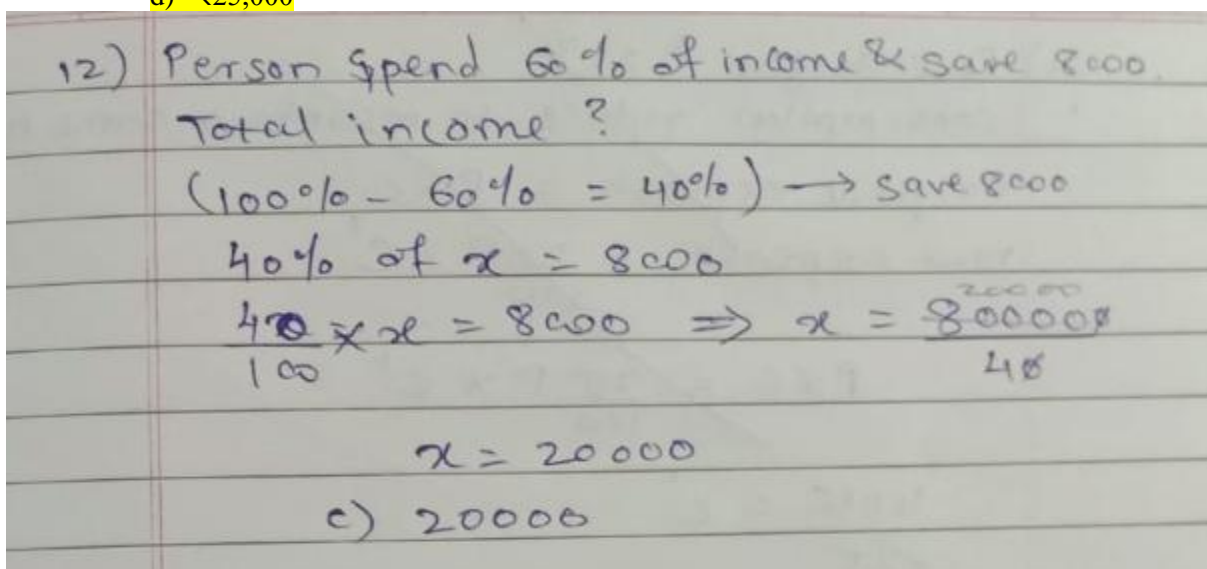 d) ₹25,000
12) Person Spend 60% of income & save 8000.
Total income ?
(100% - 60% = 40%) → save 8000
40% of x = 8000
40/100 × x = 8000 ⇒ x = 800000/40 20000
x = 20000
c) 20000